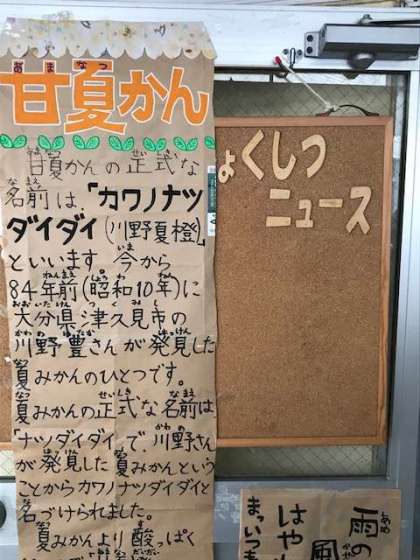 甘夏かん
甘夏かんの正式な
名前は、「カワノナツ
ダイダイ(川野夏橙)」
といいます 今から
84年前(昭和10年)に
大分県津久見市の
川野豊さんが発見した
夏みかんのひとつです。
夏みかんの正式な名前は
「ナツダイダイ」で、川野さん
が発見した夏みかんという
ことからカワノナツダイダイと
名づけられました。
夏みかんより酸っぱく
ょくしつ
ニュース
雨の
はや
まっいつも